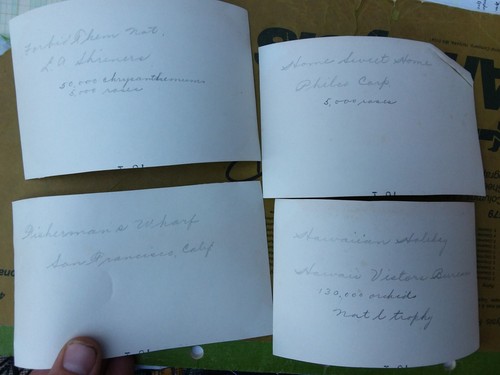 Forbid Them Not,
LA Shriners
50,000 chrysanthemums
5,000 roses
Home Sweet Home
Philco Corp.
5,000 roses
Fisherman's Wharf
San Francisco, Calif
Hawaiian Holiday
Hawaii Vistors Bureau
120,000 orchids
Nat'l trophy